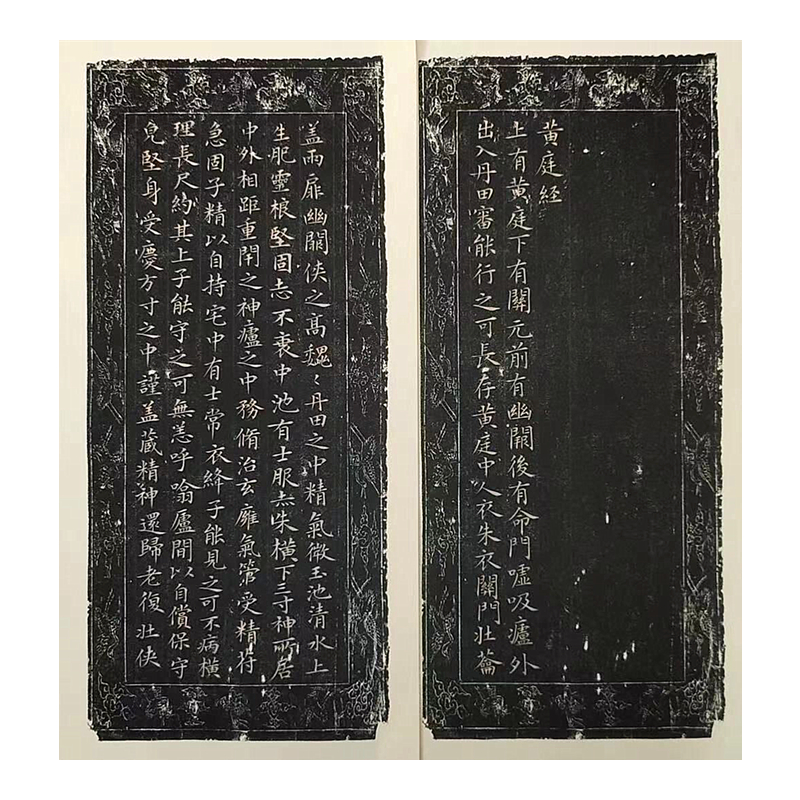 黄庭经
上有黄庭下有關元前有幽闕後有命門嘘吸廬外
出入丹田審能行之可長存黄庭中人衣朱衣關門壯蘥
盖兩扉幽闕俠之髙魏〻丹田之中精氣微玉池清水上
生肥靈根堅固志不衰中池有士服赤朱横下三寸神所居
中外相距重閇之神廬之中務脩治玄廱氣管受精符
急固子精以自持宅中有士常衣絳子能見之可不病横
理長尺約其上子能守之可無恙呼噏廬間以自償保守
皃堅身受慶方寸之中謹盖藏精神還歸老復壯俠